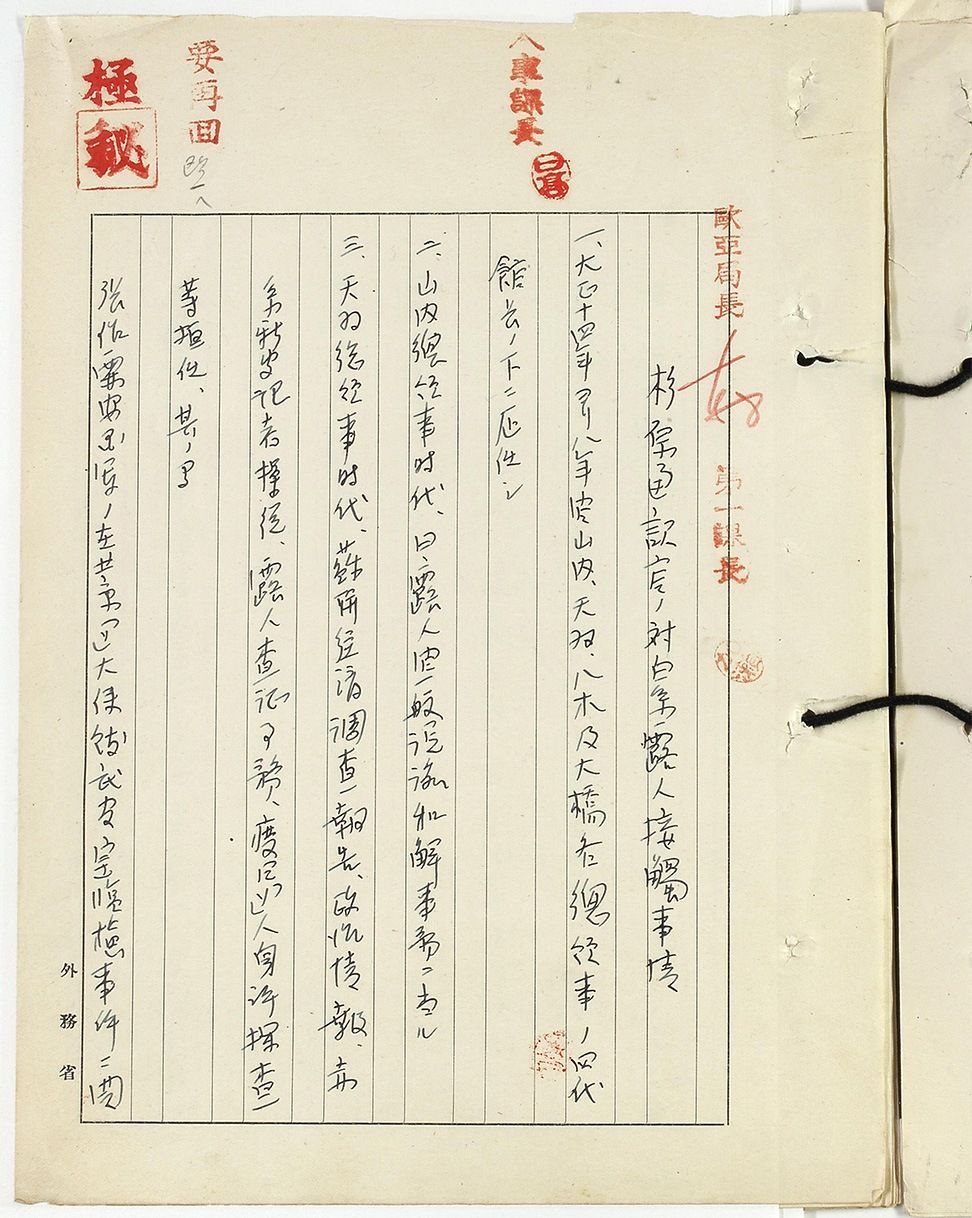 極
秘
要再回
人事課長
歐亞局長
第一課長
杉原通訳官ノ対白系露人接觸事情
一、大正十四年ヨリ八年間山内、天羽、八木及大橋各總領事ノ四代
館長ノ下ニ在任シ
二、山内總領事時代、日、露人間一般訴訟和解事務ニ当ル
三、天羽総領事時代、蘇聯経済調査報告、政治情報、赤
系新聞記者操縦、露人査証事務、
人身許探査
等担任、其ノ間
張作霖
ノ在北京
大使館武官室臨検事件ニ関
外務省